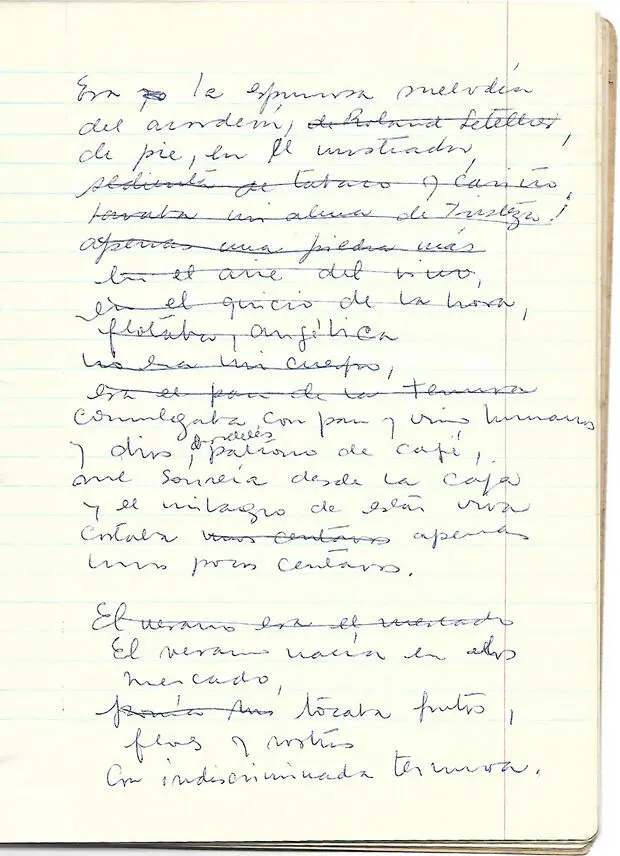 Era yo la espumosa melodía
del acordeón, de Roland Letellier,
de pie, en el mostrador,
sedienta de tabaco y cariño,
lavaba mi alma de tristeza!
apenas una piedra más
en el aire del vino,
en el quicio de la hora,
flotaba, angélica
no era mi cuerpo,
era el pan de la ternura
comulgaba con pan y vino humanos
y dios, patrono de café,
me sonreía desde la caja
y el milagro de estar viva
costaba unos centavos apenas
unos pocos centavos.
El verano era el mercado
El verano nacía en el
mercado,
ponía sus tocaba frutos,
flores y rostros
Con indiscriminada ternura.